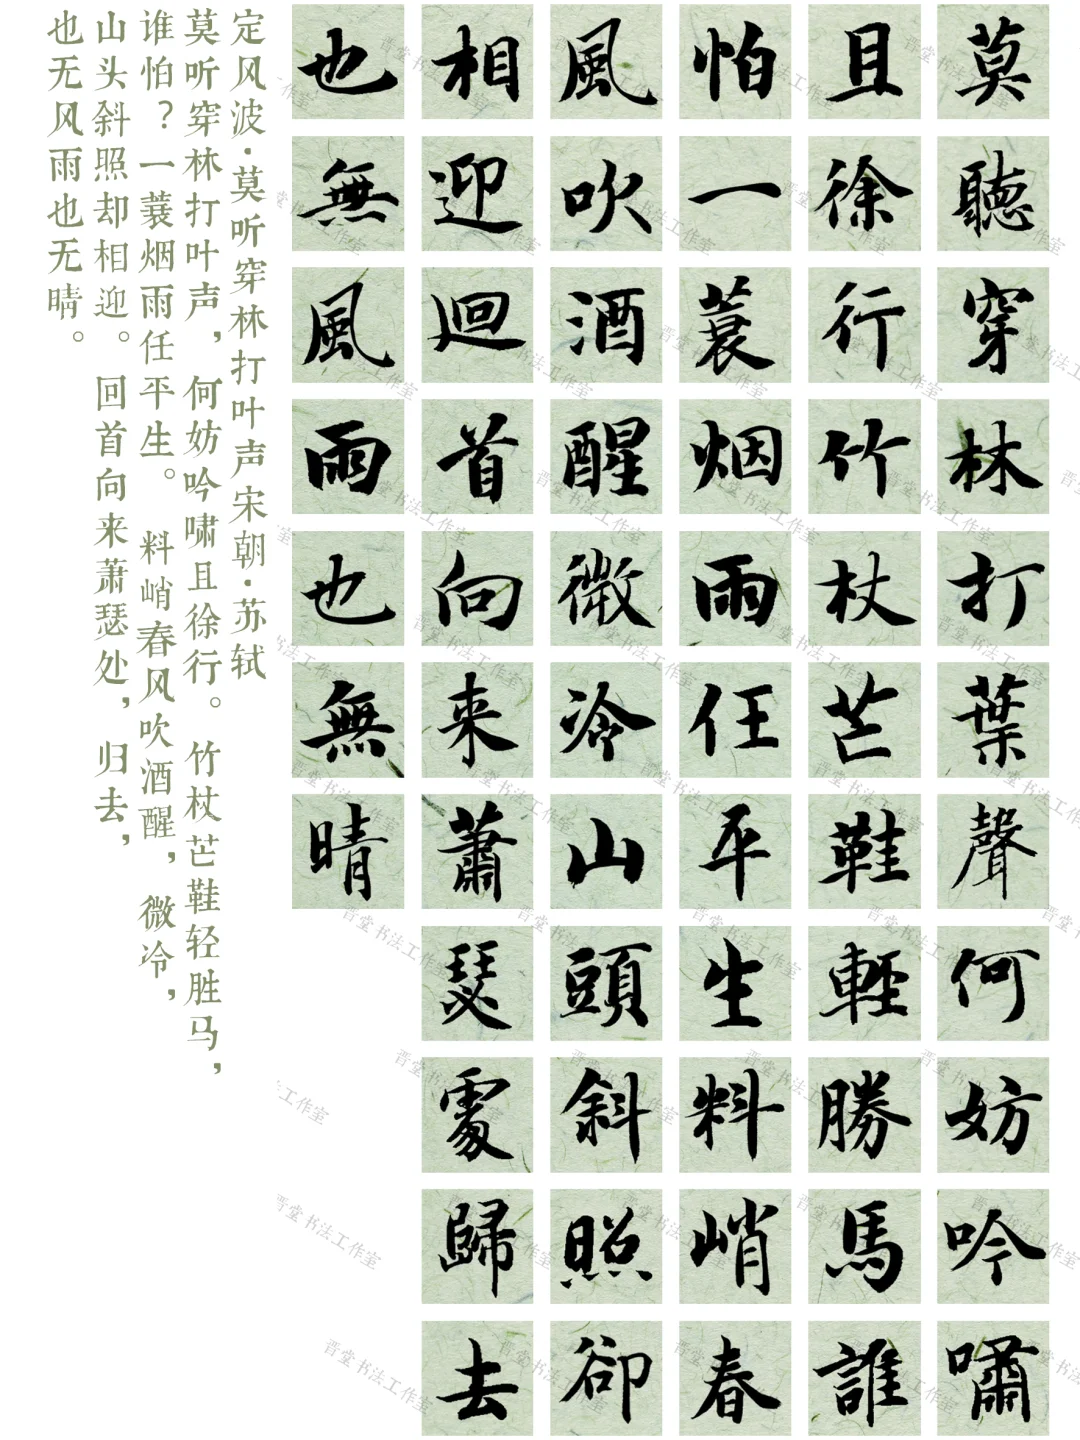 莫聽穿林打葉聲何妨吟嘯
且徐行竹杖芒鞋輕勝馬誰
怕一蓑烟雨任平生料峭春
風吹酒醒微冷山頭斜照卻
相迎迴首向来蕭瑟處歸去
也無風雨也無晴
定风波·莫听穿林打叶声宋朝·苏轼
莫听穿林打叶声，何妨吟啸且徐行。竹杖芒鞋轻胜马，
谁怕？一蓑烟雨任平生。料峭春风吹酒醒，微冷，
山头斜照却相迎。回首向来萧瑟处，归去，
也无风雨也无晴。
晋堂书法工作室